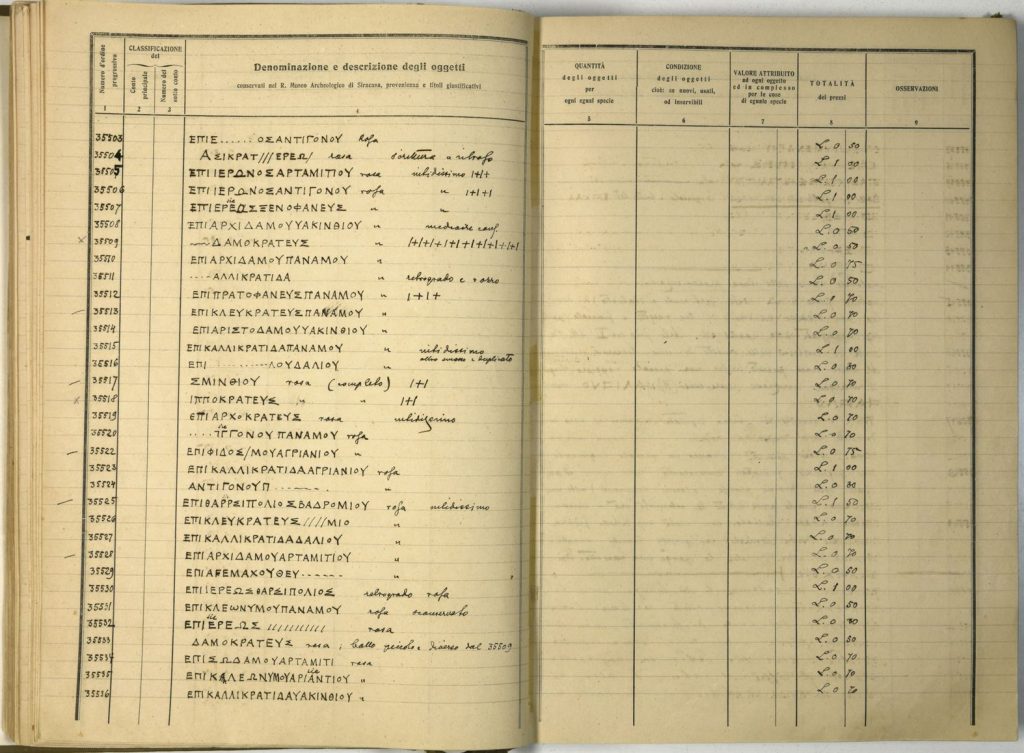 Numero d'ordine progressivo
CLASSIFICAZIONE del
Conto principale
Numero del sotto conto
Denominazione e descrizione degli oggetti
conservati nel R. Museo Archeologico di Siracusa, provenienza e titoli giustificativi
QUANTITÀ degli oggetti per ogni egual specie
CONDIZIONE degli oggetti cioè: se nuovi, usati, od inservibili
VALORE ATTRIBUITO ad ogni oggetto ed in complesso per le cose di eguale specie
TOTALITÀ dei prezzi
OSSERVAZIONI
1 2 3 4 5 6 7 8 9
35503 ΕΠΙΕ.......ΟΣΑΝΤΙΓΟΝΟΥ rosa L. 0 50
35504 ΑΣΙΚΡΑΤ///ΕΡΕΩ/ rosa L. 1 00
35505 ΕΠΙΙΕΡΩΝΟΣΑΡΤΑΜΙΤΙΟΥ rosa nitidissimo 1+1+ L. 1 00
35506 ΕΠΙΙΕΡΩΝΟΣΑΝΤΙΓΟΝΟΥ rosa " 1+1+1 L. 1 00
35507 ΕΠΙΕΡΕΩΣΞΕΝΟΦΑΝΕΥΣ " " L. 1 00
35508 ΕΠΙΑΡΧΙΔΑΜΟΥΥΑΚΙΝΘΙΟΥ " mediocre L. 0 50
35509 ΔΑΜΟΚΡΑΤΕΥΣ " 1+1+1+1+1+1+1+1+1+1 L. 0 50
35510 ΕΠΙΑΡΧΙΔΑΜΟΥΠΑΝΑΜΟΥ " L. 0 75
35511 ....ΑΛΛΙΚΡΑΤΙΔΑ " retrogrado e L. 0 50
35512 ΕΠΙΠΡΑΤΟΦΑΝΕΥΣΠΑΝΑΜΟΥ " 1+1+ L. 0 70
35513 ΕΠΙΚΛΕΥΚΡΑΤΕΥΣΠΑΝΑΜΟΥ " L. 0 70
35514 ΕΠΙΑΡΙΣΤΟΔΑΜΟΥΥΑΚΙΝΘΙΟΥ " L. 0 70
35515 ΕΠΙΚΑΛΛΙΚΡΑΤΙΔΑΠΑΝΑΜΟΥ " nitidissimo L. 1 00
35516 ΕΠΙ ......ΛΟΥΔΑΛΙΟΥ " altro e duplicato L. 0 80
35517 ΣΜΙΝΘΙΟΥ rosa (completo) 1+1 L. 0 70
35518 ΙΠΠΟΚΡΑΤΕΥΣ " " 1+1 L. 0 70
35519 ΕΠΙΑΡΧΟΚΡΑΤΕΥΣ rosa L. 0 70
35520 ....ΙΓΓΟΝΟΥΠΑΝΑΜΟΥ rosa L. 0 70
35522 ΕΠΙΦΙΔΟΣ/ΜΟΥΑΓΡΙΑΝΙΟΥ " L. 0 75
35523 ΕΠΙΚΑΛΛΙΚΡΑΤΙΔΑΑΓΡΙΑΝΙΟΥ rosa L. 1 00
35524 ΑΝΤΙΓΟΝΟΥΠ........ " L. 0 80
35525 ΕΠΙΘΑΡΡΣΙΠΟΛΙΟΣΒΑΔΡΟΜΙΟΥ rosa nitidissimo L. 1 50
35526 ΕΠΙΚΛΕΥΚΡΑΤΕΥΣ////ΜΙΟ " L. 0 70
35527 ΕΠΙΚΑΛΛΙΚΡΑΤΙΔΑΔΑΛΙΟΥ " L. 0 70
35528 ΕΠΙΑΡΧΙΔΑΜΟΥΑΡΤΑΜΙΤΙΟΥ " L. 0 70
35529 ΕΠΙΑΓΕΜΑΧΟΥΘΕΥ...... " L. 0 50
35530 ΕΠΙΙΕΡΕΩΣΘΑΡΣΙΠΟΛΙΟΣ retrogrado rosa L. 1 00
35531 ΕΠΙΚΛΕΩΝΥΜΟΥΠΑΝΑΜΟΥ rosa sconservato L. 0 50
35532 ΕΠΙΕΡΕΩΣ /////////// rosa L. 0 80
35533 ΔΑΜΟΚΡΑΤΕΥΣ rosa, bollo piccolo e diverso dal 35509 L. 0 50
35534 ΕΠΙΣΩΔΑΜΟΥΑΡΤΑΜΙΤΙ rosa L. 0 70
35535 ΕΠΙΚΛΕΩΝΥΜΟΥΑΡΙΑΝΤΙΟΥ " L. 0 70
35536 ΕΠΙΚΑΛΛΙΚΡΑΤΙΔΑΥΑΚΙΝΘΙΟΥ " L. 0 70